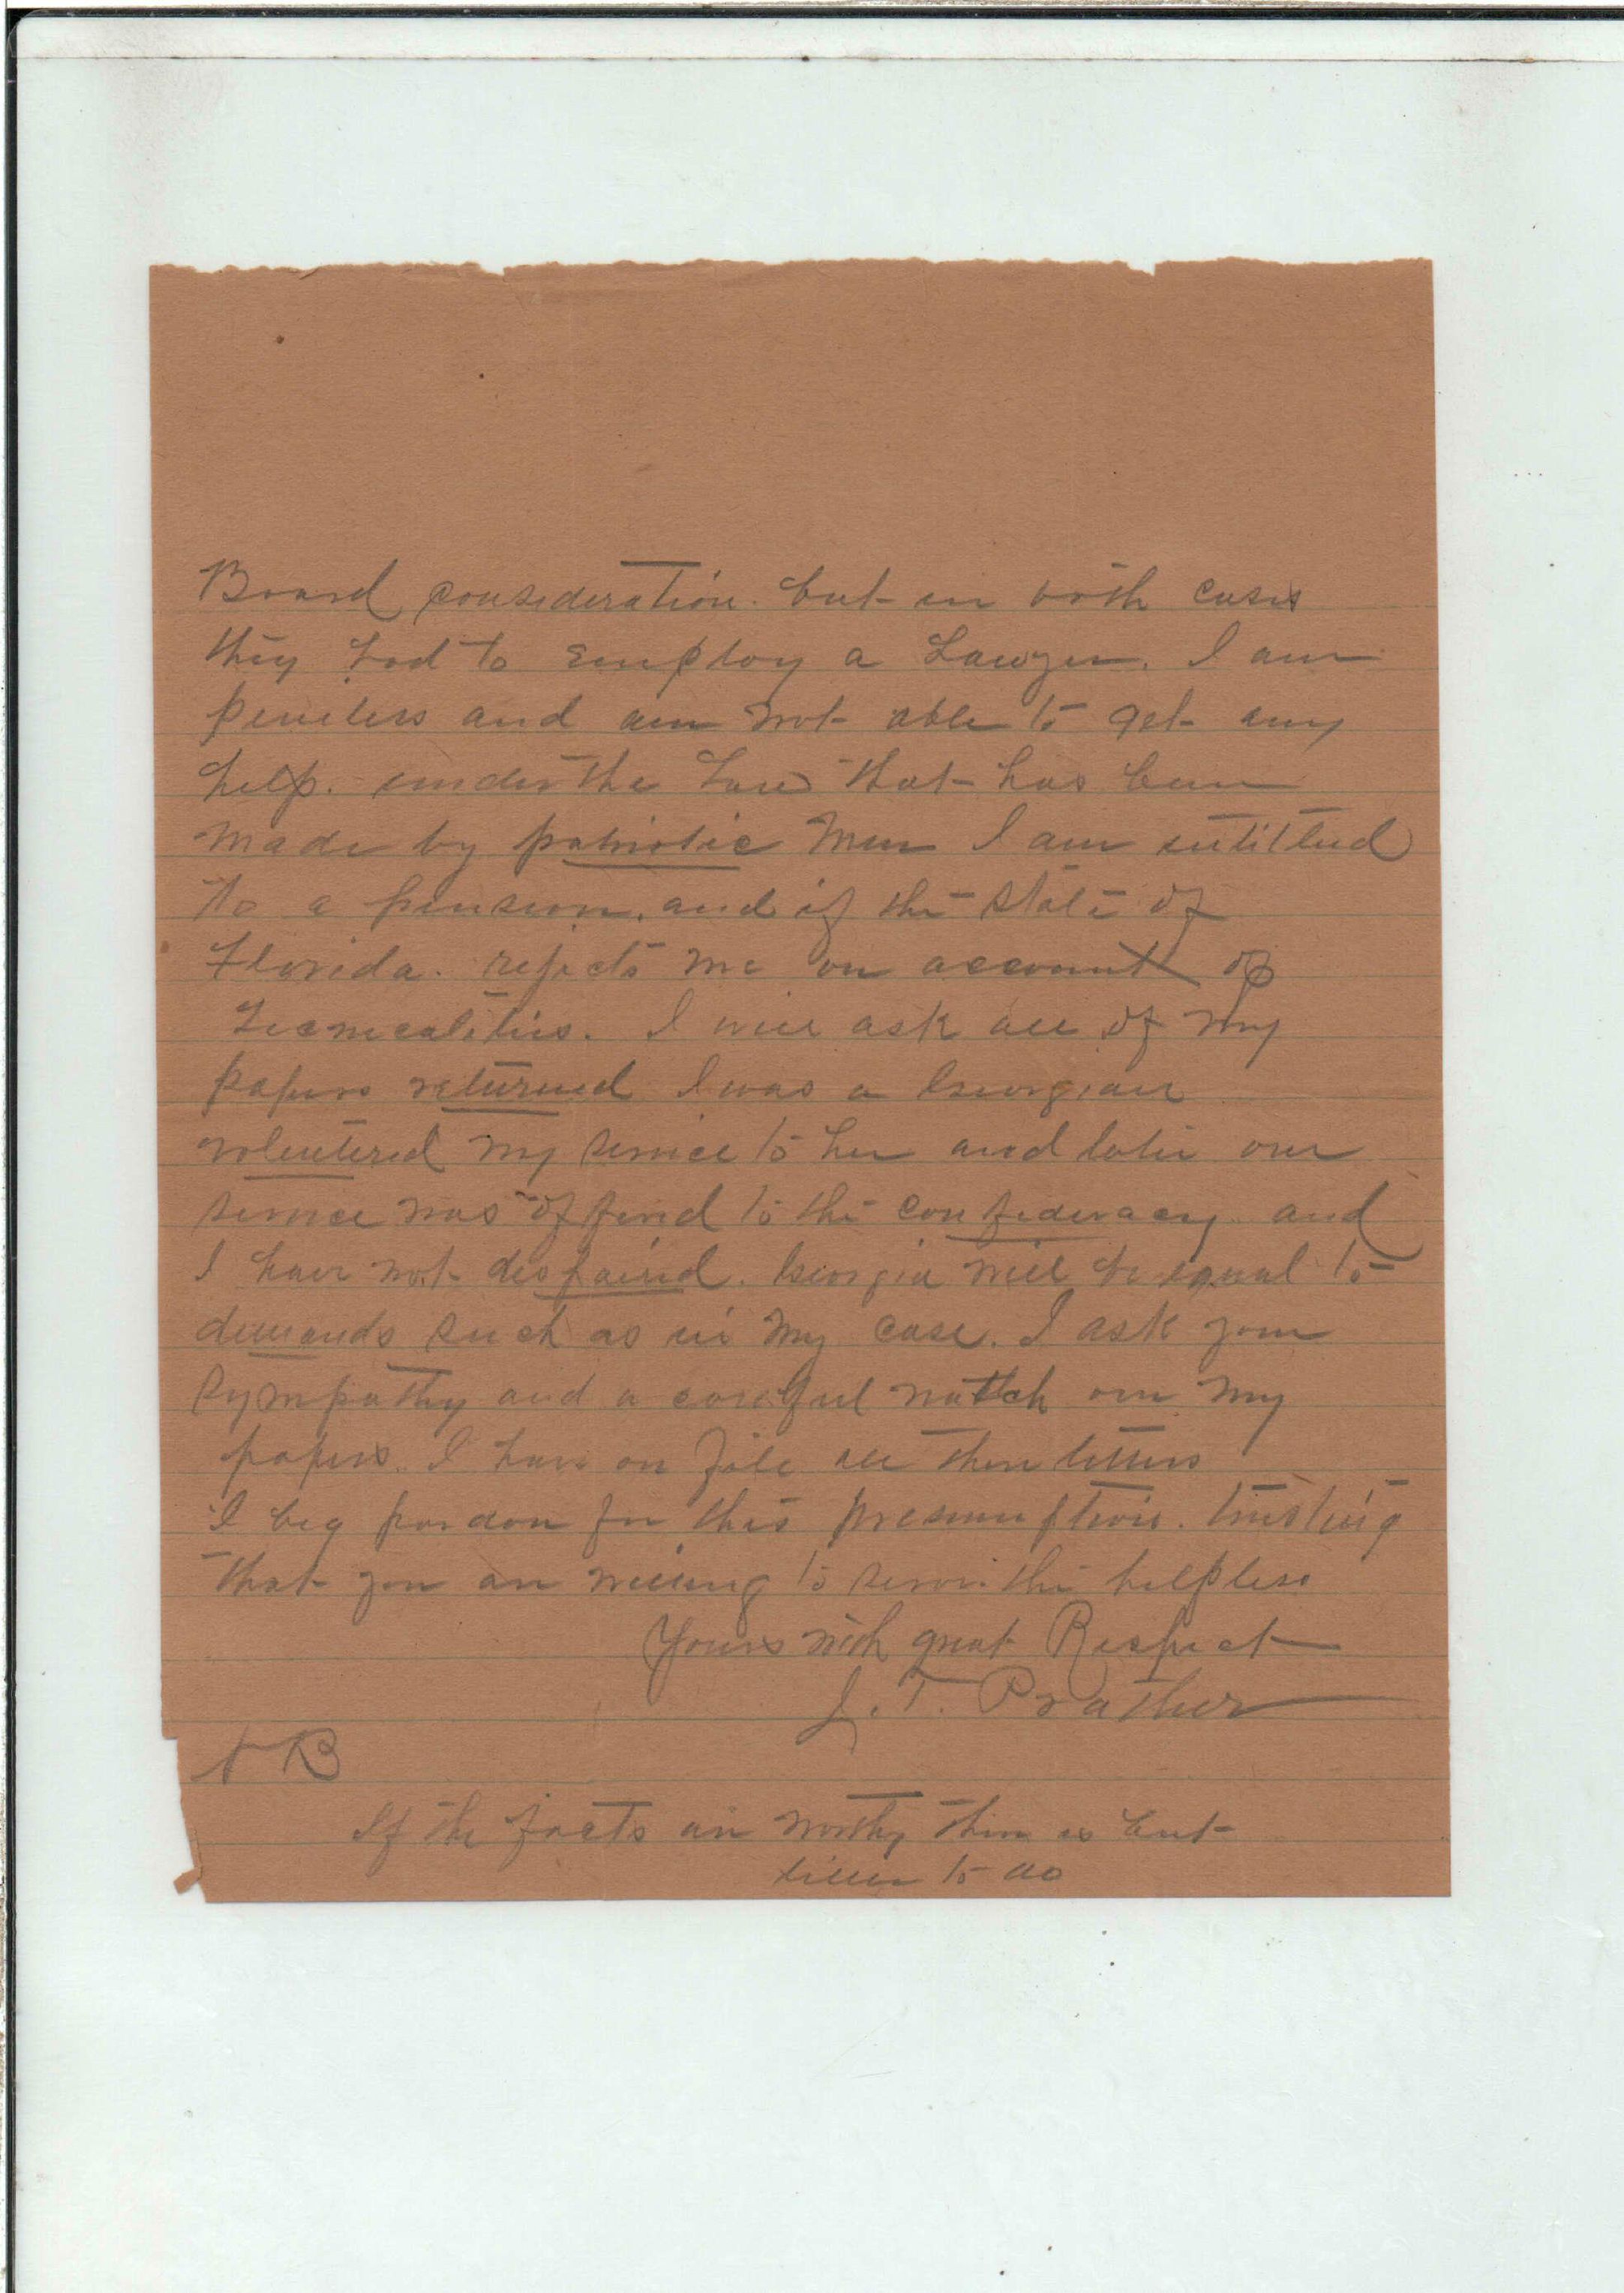 Board consideration. but in both cases
they had to Employ a Lawyer. I am
peniless and am not able to get any
help. under the Law that has been
made by patriotic Men I am intitled
to a pension. and if the State of
Florida. rejects me on account of
Tecnicalities. I will ask all of my
papers returned I was a Georgian
volentered my service to her and later our
service was offered to the confederacy and
I have not despaired. Georgia will be equal to
demands such as in my case. I ask your
sympathy and a careful watch over my
papers. I have on file all these letters
I beg pardon for this presumption. trusting
that you are willing to serve the helpless
Yours with great Respect
J. T. Prather
N B
If the facts are worthy there is but
little to do